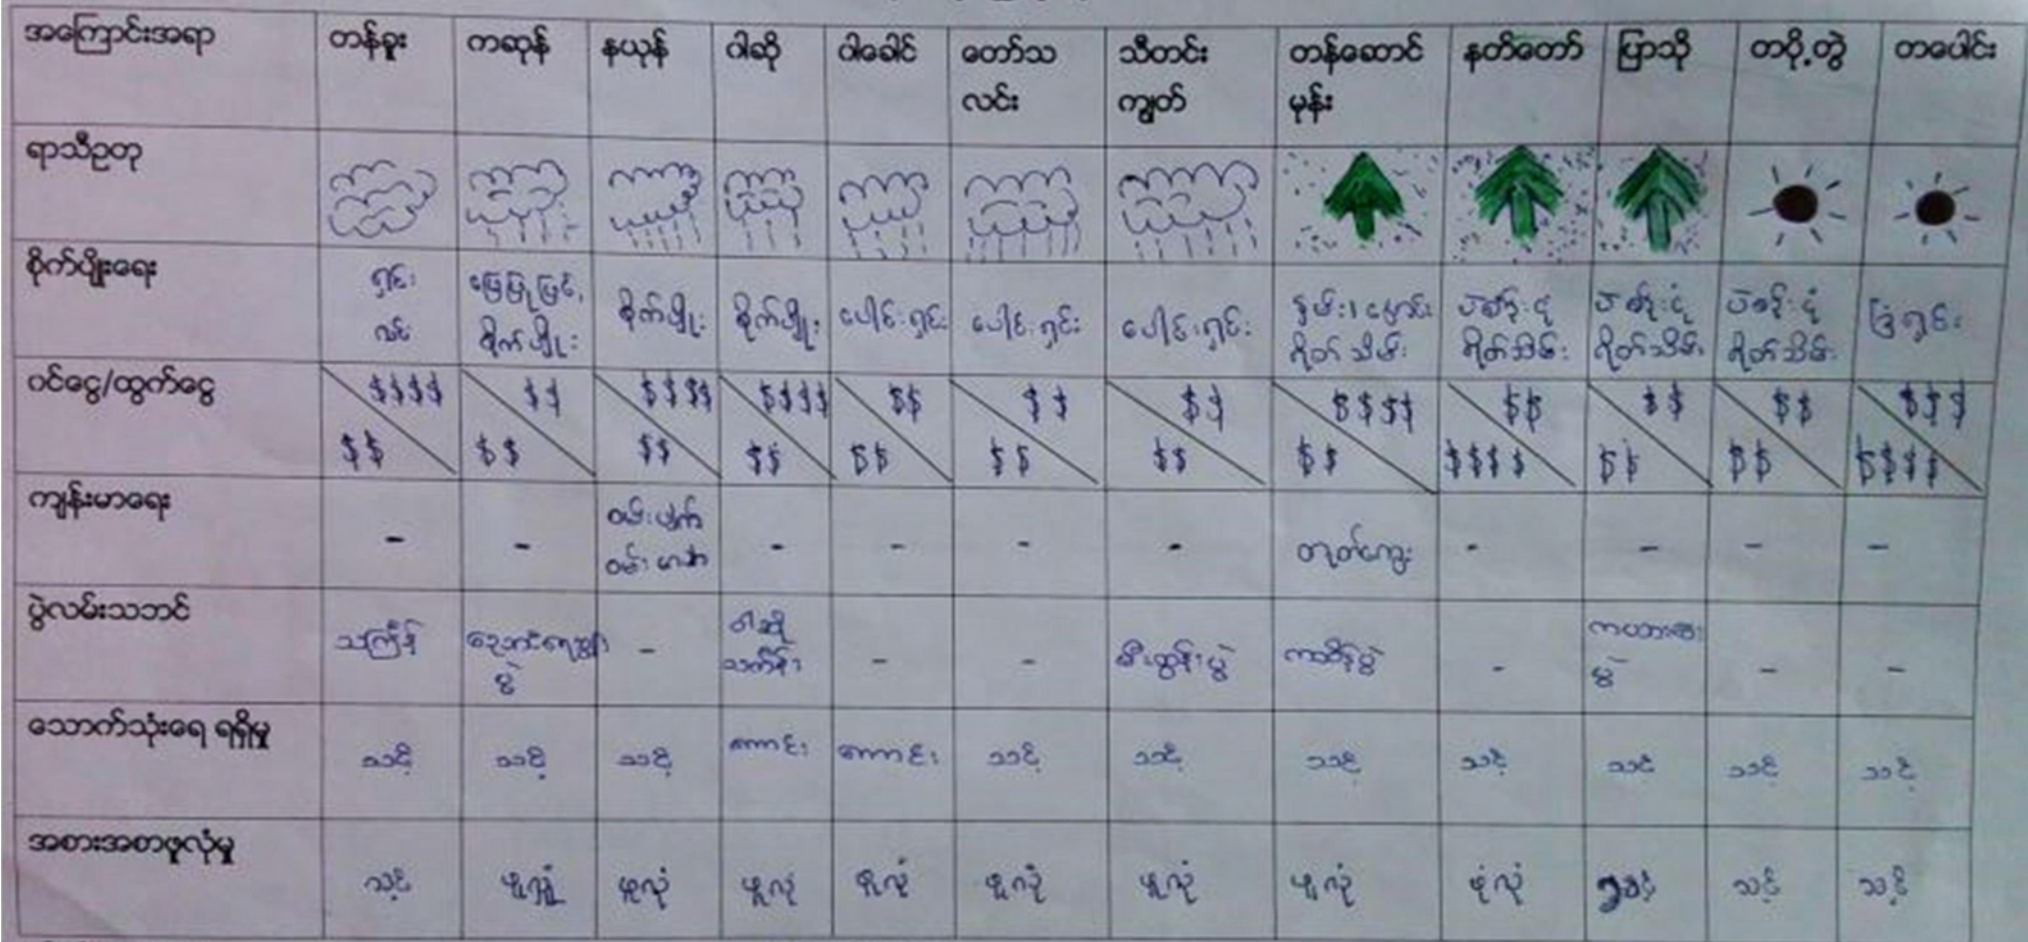 အကြောင်းအရာ တန်ခူး ကဆုန် နယုန် ဝါဆို ဝါခေါင် တော်သလင်း သီတင်းကျွတ် တန်ဆောင်မုန်း နတ်တော် ပြာသို တပို့တွဲ တပေါင်း
ရာသီဥတု
စိုက်ပျိုးရေး ရှင်းလင်း မြေပြုပြင်, စိုက်ပျိုး စိုက်ပျိုး စိုက်ပျိုး ပေါင်းရှင်း ပေါင်းရှင်း ပေါင်းရှင်း ရိတ်သိမ်း ရိတ်သိမ်း ရိတ်သိမ်း ရိတ်သိမ်း ခြံရှင်း
ဝင်ငွေ/ထွက်ငွေ $$$$ $$ $$$$ $$$$ $$ $$ $$ $$$$ $$ $$ $$ $$$
$$ $$ $$ $$ $$ $$ $$ $$ $$$$ $$ $$ $$$$
ကျန်းမာရေး - - ဝမ်းပျက် ဝမ်း - - - - တုတ်ကွေး - - - -
ပွဲလမ်းသဘင် သင်္ကြန် ညောင်ရေသွန်းပွဲ - ဝါဆိုသင်္ကန်း - - မီးထွန်းပွဲ ကထိန်ပွဲ - ပွဲ - -
သောက်သုံးရေ ရရှိမှု သင့် သင့် သင့် ကောင်း ကောင်း သင့် သင့် သင့် သင့် သင့် သင့် သင့်
အစားအစာဖူလုံမှု သင့် ဖူလုံ ဖူလုံ ဖူလုံ ဖူလုံ ဖူလုံ ဖူလုံ ဖူလုံ ဖူလုံ သင့် သင့် သင့်